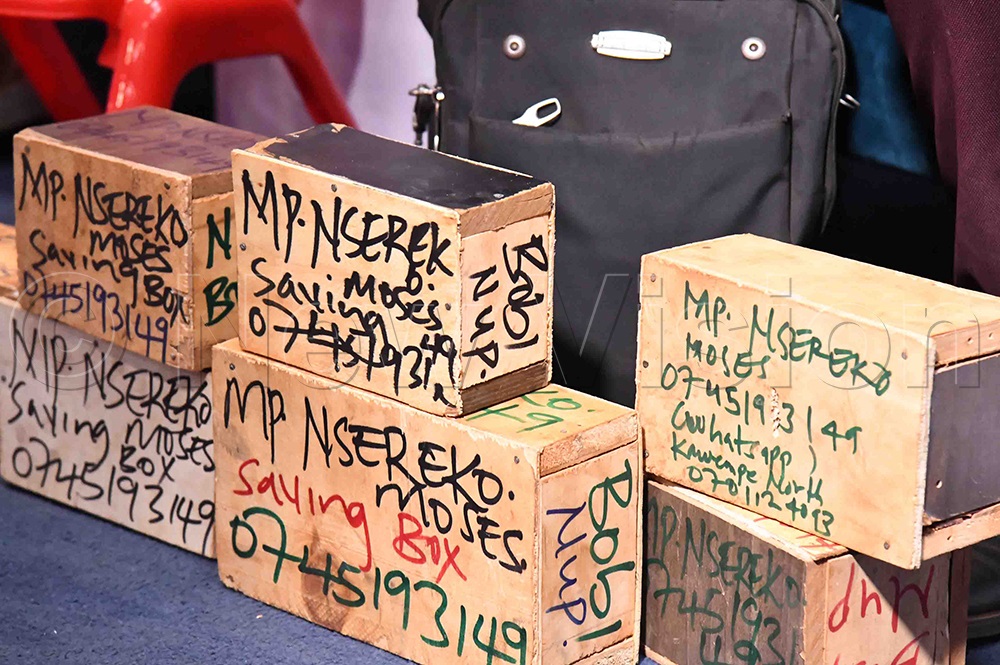 MP. NSEREKO
MOSES
Saving Box
0745193149
N
B
MP. NSEREK
O.
Saving MOSES.
0745193149
Bobi
NUP.
MP. NSEREKO
Saving MOSES
BOX
0745193149
MP NSEREKO.
Saving MOSES
BOX
0745193149
Bobi
NUP.
MP. NSEREKO
MOSES
0745193149
(whatsapp)
Kawempe North
MP. NSEREKO
MOSES
New Vision